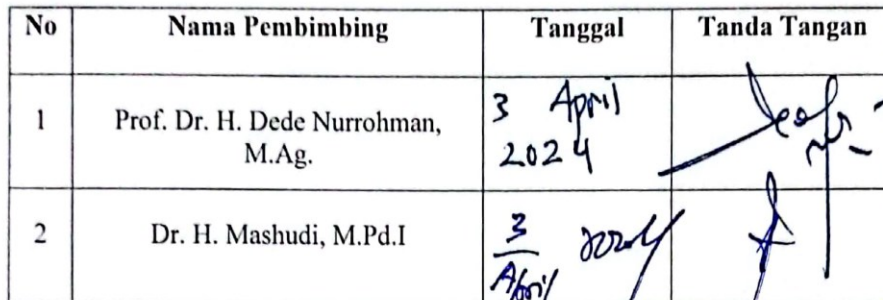 No Nama Pembimbing Tanggal Tanda Tangan
1 Prof. Dr. H. Dede Nurrohman, M.Ag. 3 April 2024
2 Dr. H. Mashudi, M.Pd.I 3 April 2024